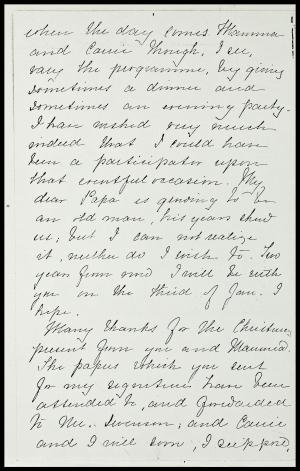 when the day comes. Mamma
and Carrie though, I see,
vary the programme, by giving
sometimes a dinner and
sometimes an evening party.
I have wished very much
indeed that I could have
been a participator upon
that eventful occasion. My
dear Papa is growing to be
an old man, his years show
us; but I can not realize
it, neither do I wish to. Two
years from now I will be with
you on the third of Jan. I
hope.
Many thanks for the Christmas
present from you and Mamma.
The papers which you sent
for my signature have been
attended to, and forwarded
to Mr. Swenson; and Carrie
and I will soon, I suppose,